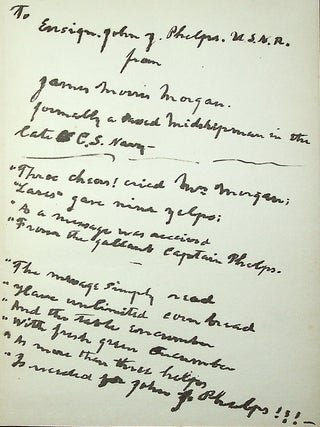 To
Ensign. John J. Phelps. U.S.N.R.
from
James Morris Morgan.
formally a Midshipman in the
late C.S. Navy—
"Three cheers! cried Mrs Morgan;
"Lares" gave nine yelps;
"As a message was received
"From the gallant Captain Phelps.
—
"The message simply read
"Have unlimited corn bread
"And the table encumber
"With fresh green cucumber
"As more than three helps
"Is needed for John J Phelps!!!—